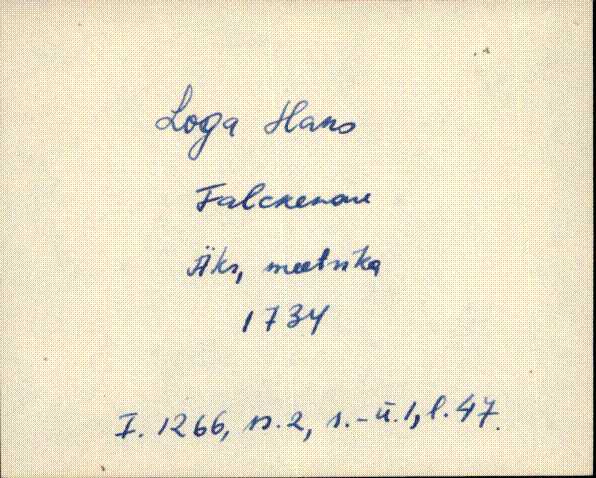 Loga Hans
Falckenau
Äks, meetrika
1734
F. 1266, n. 2, s.-ü. 1, l. 47.